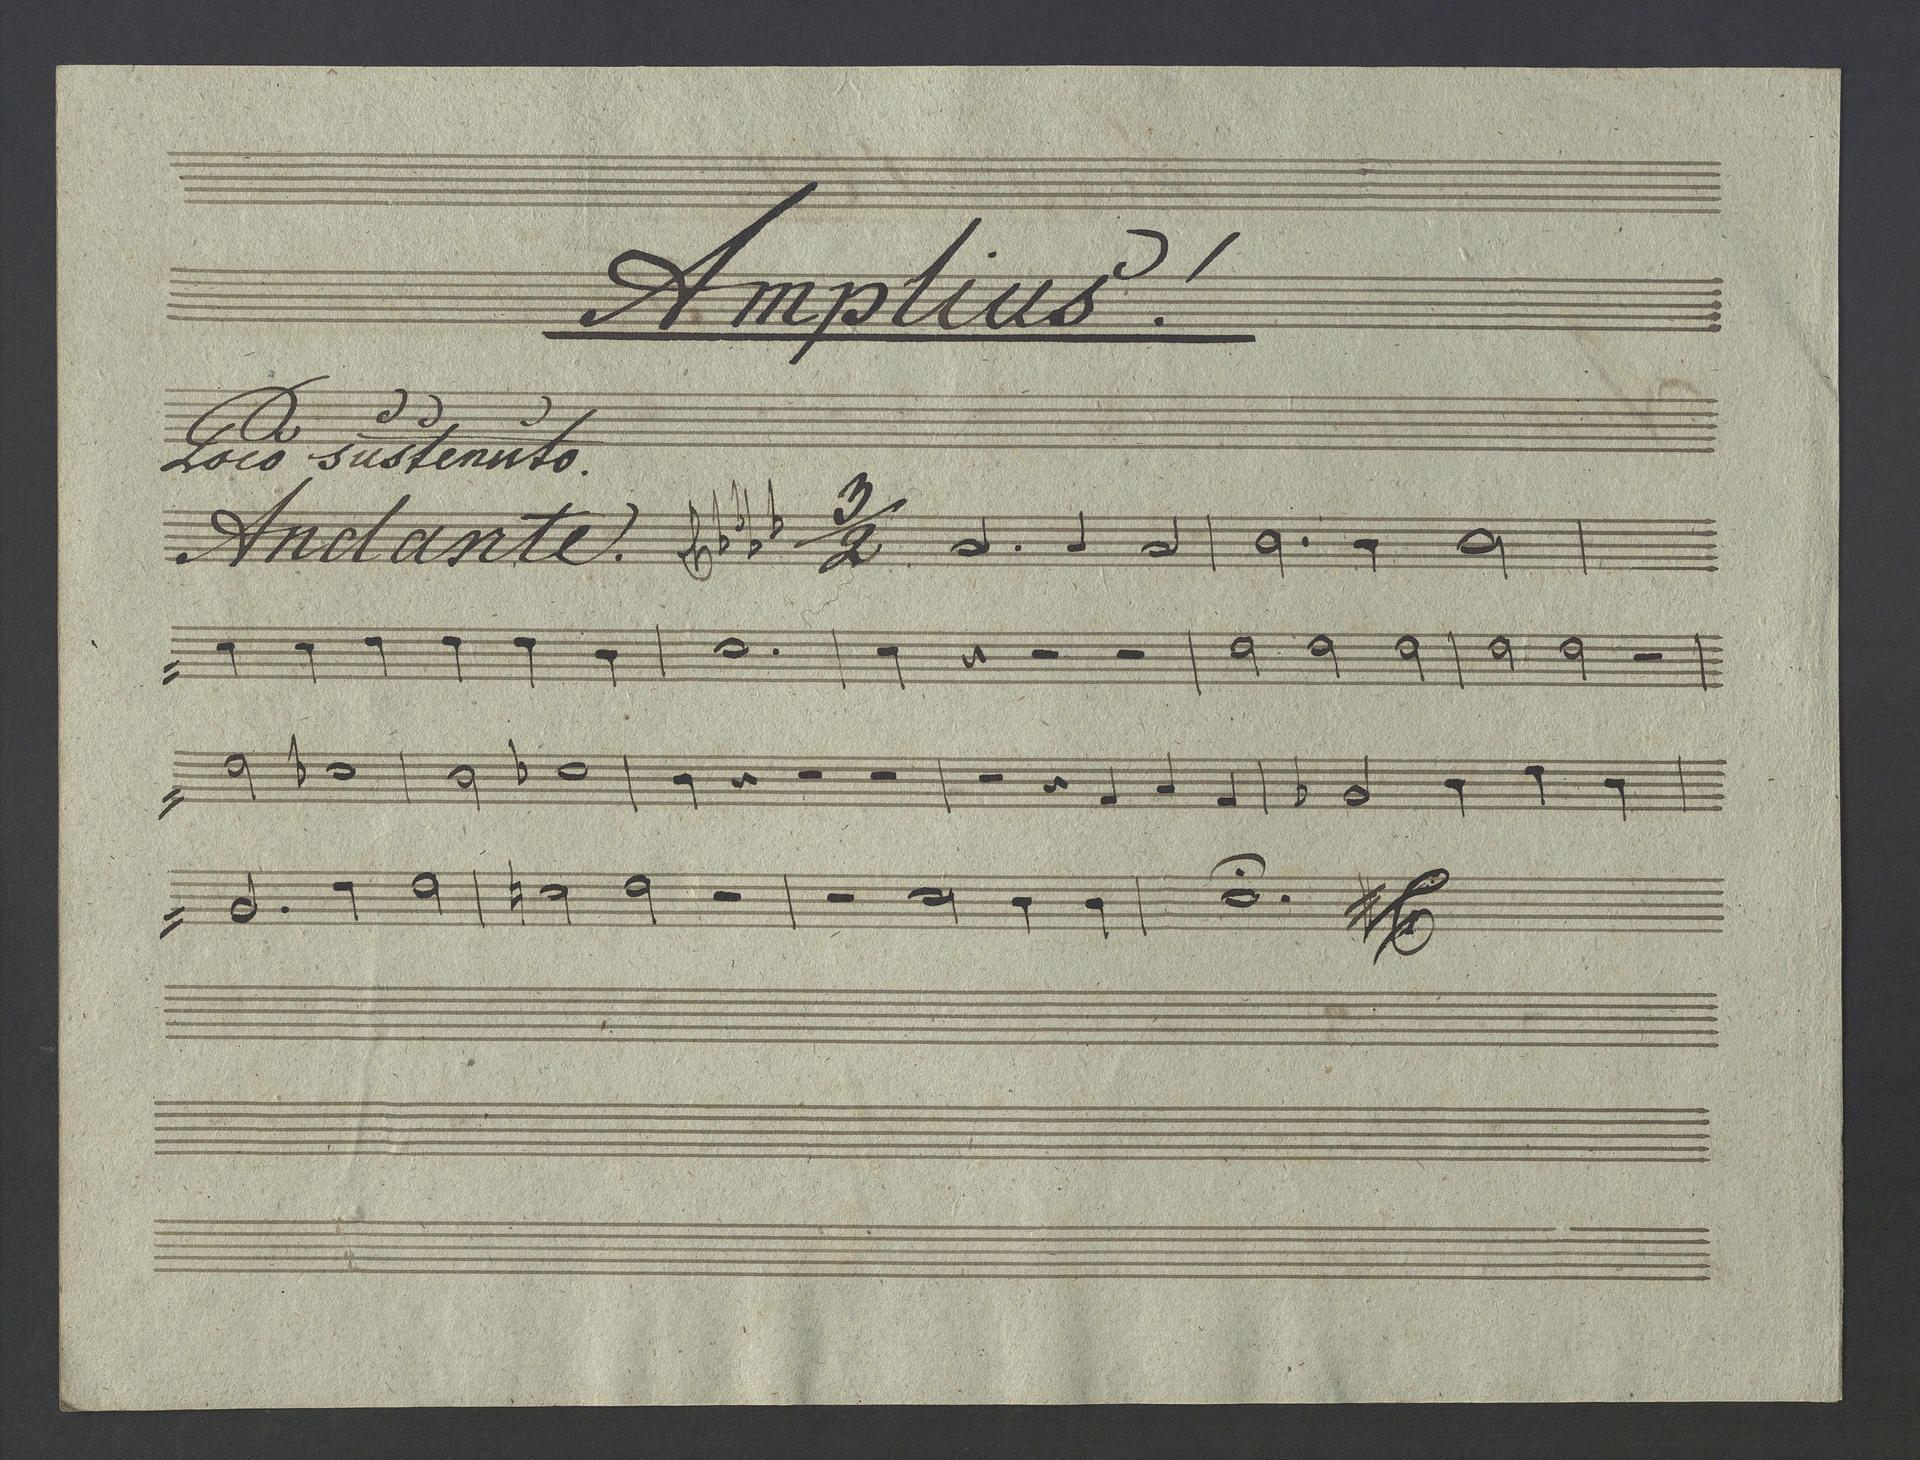 Amplius!
Poco sustenuto.
Andante. 3/2